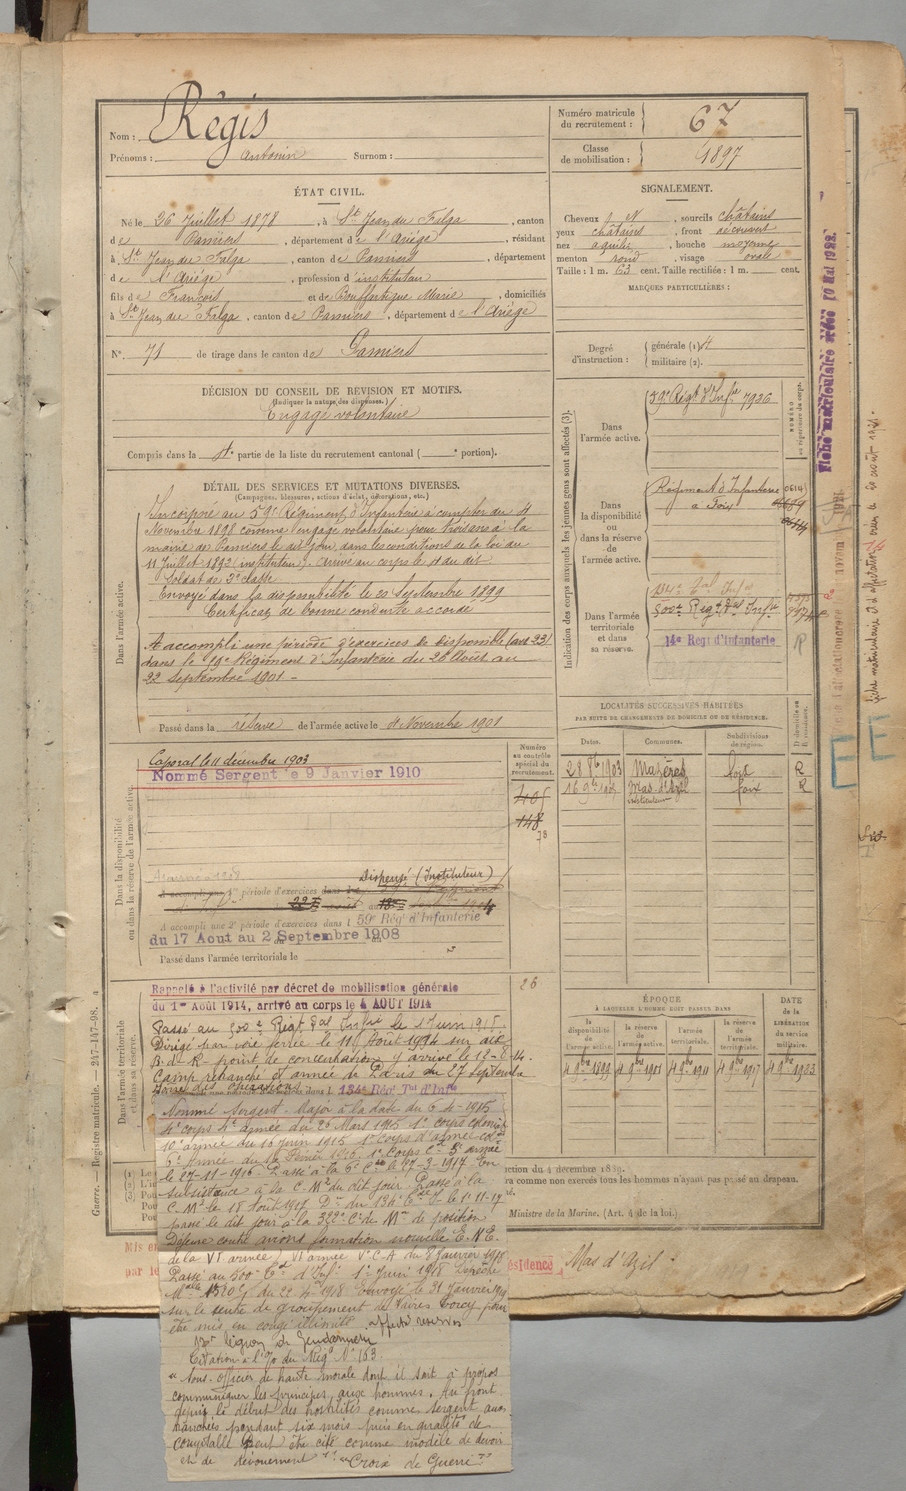 Nom : Régis
Prénoms : Antonin Surnom :
Numéro matricule du recrutement : 67
Classe de mobilisation : 1897
ÉTAT CIVIL.
Né le 26 Juillet 1878, à St Jean du Falga, canton
de Pamiers, département de l'Ariége, résidant
à St Jean du Falga, canton de Pamiers, département
de l'Ariége, profession d'instituteur
fils de François et de Bouffartigue Marie, domiciliés
à St Jean du Falga, canton de Pamiers, département de l'Ariége
N° 71 de tirage dans le canton de Pamiers
SIGNALEMENT.
Cheveux et sourcils châtains
yeux châtains, front découvert
nez aquilin, bouche moyenne
menton rond, visage ovale
Taille : 1 m. 63 cent. Taille rectifiée : 1 m. cent.
MARQUES PARTICULIÈRES :
Degré d'instruction : générale (1) 4
militaire (2).
DÉCISION DU CONSEIL DE REVISION ET MOTIFS.
(Indiquer la nature des dispenses.)
Engagé volontaire
Compris dans la partie de la liste du recrutement cantonal ( portion).
DÉTAIL DES SERVICES ET MUTATIONS DIVERSES.
(Campagnes, blessures, actions d'éclat, décorations, etc.)
Dans l'armée active.
Incorporé au 59e Régiment d'Infanterie à compter du 4
Novembre 1898 comme engagé volontaire pour trois ans à la
mairie de Pamiers le dit jour, dans les conditions de la loi du
11 Juillet 1892 (instituteur). Arrivé au corps le 4 du dit.
Soldat de 2e classe
Envoyé dans la disponibilité le 22 Septembre 1899
Certificat de bonne conduite accordé
A accompli une période d'exercices de disponible (art 23)
dans le Régiment d'Infanterie du 26 Août au
22 Septembre 1901 -
Passé dans la réserve de l'armée active le 4 Novembre 1901
Indication des corps auxquels les jeunes gens sont affectés (3).
NUMÉRO au répertoire du corps.
Dans l'armée active.
59e Régt d'Infie 7926
Dans la disponibilité ou dans la réserve de l'armée active.
Régiment d'Infanterie
à Foix
Dans l'armée territoriale et dans sa réserve.
134e Tal Infie
500e Régt Tal Infie
14e Regt d'Infanterie
LOCALITÉS SUCCESSIVES HABITÉES
PAR SUITE DE CHANGEMENTS DE DOMICILE OU DE RÉSIDENCE.
Dates. Communes. Subdivisions de région. D domicile ou R résidence.
28 8bre 1903 Mazères Foix R
Mas d'Azil Foix R
instituteur
Dans la disponibilité ou dans la réserve de l'armée active.
Numéro au contrôle spécial du recrutement.
Caporal le 11 décembre 1903
Nommé Sergent le 9 Janvier 1910
405
148
Dispensé (Instituteur)
A accompli une 2e période d'exercices dans le 59e Rég' d'Infanterie
du 17 Aout au 2 Septembre 1908
Passé dans l'armée territoriale le
ÉPOQUE
À LAQUELLE L'HOMME DOIT PASSER DANS
la disponibilité de l'armée active.
la réserve de l'armée active.
l'armée territoriale.
la réserve de l'armée territoriale.
DATE DE LA LIBÉRATION DU SERVICE MILITAIRE.
4 9bre 1899 4 9bre 1901 4 9bre 1911 4 9bre 1917 4 9bre 1923
Dans l'armée territoriale et dans sa réserve.
26
Rappelé à l'activité par décret de mobilisation générale
du 1er Août 1914, arrivé au corps le 4 AOUT 1914
Passé au 500e Régt Tal Infie le 1 Juin 1915.
Dirigé par voie ferrée le 11 Août 1914 sur dit
B. de R- point de concentration y arrive le 12-8-14.
Camp retranché et armée de Paris du 27 Septembre
134e Rég' Tal d'Infie
Nommé Sergent-Major à la date du 6-4-1915
4e corps 4e armée du 26 Mars 1915 1er corps colonial
10e armée du 16 Juin 1915 1er Corps d'armée col
6e Armée du 1916 1er Corps Cal 5e armée
le 27-11-1916 Passé à la 6e Cie le 27-3-1917 En
subsistance à la C.Mre du dit jour Passé à la
C.Mre le 18 Août 1917 Dr du 134e Ter I. le 1-11-17
passé le dit jour à la 322e Cie de Mre de position
Défense contre avions formation nouvelle E.N.E.
de la VIe armée) VIe armée Ve C.A du 8 Janvier 1918
Passé au 500e Tal d'Infie 1er Juin 1918 Dépêche
du 22-4-1918 Envoyé le 31 Janvier 1919
sur le centre de groupement de Vivres Torcy pour
être mis en congé illimité. Affecté réserves
légion de Gendarmerie
Citation à l'O/ du Régt N° 163
"Sous-Officier de haute morale dont il sait à propos
communiquer les principes aux hommes. Au front
depuis le début des hostilités comme sergent aux
tranchées pendant six mois puis en qualité de
comptable peut être cité comme modèle de devoir
et de dévouement" "Croix de Guerre"
ction du 4 décembre 1889.
ra comme non exercés tous les hommes n'ayant pas paru au drapeau.
Ministre de la Marine. (Art. 4 de la loi.)
Mis en
par le
résidence Mas d'Azil
Guerre. — Registre matricule. — 247-147-98.
Fiche matriculaire créée 10 Mai 1922.